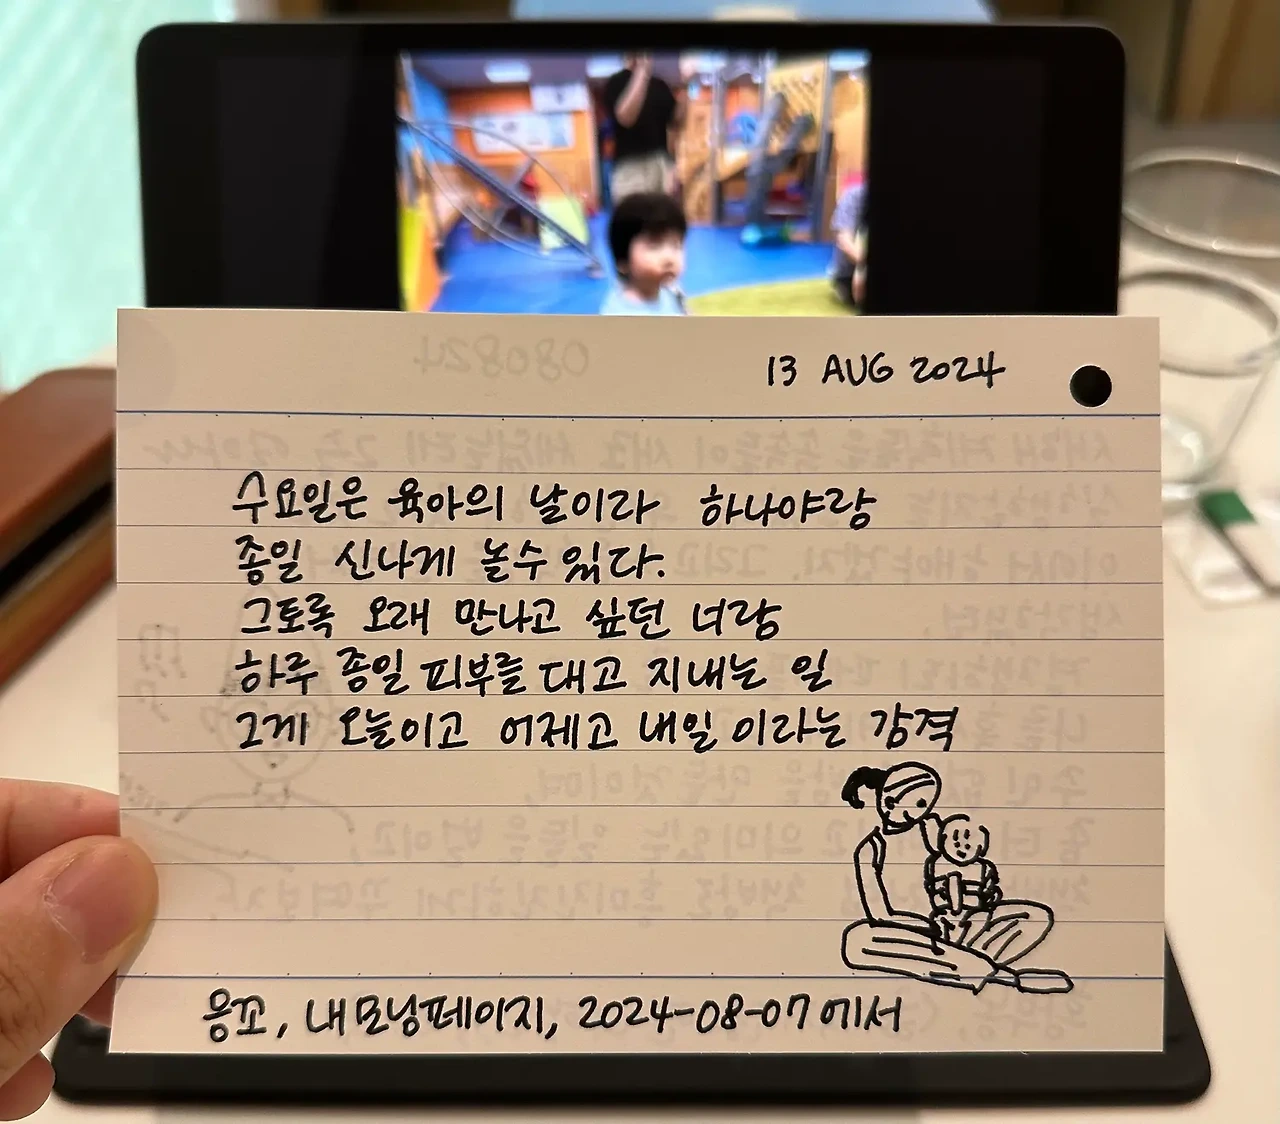 13 AUG 2024
수요일은 육아의 날이라 하나야랑
종일 신나게 놀수 있다.
그토록 오래 만나고 싶던 너랑
하루 종일 피부를 대고 지내는 일
그게 오늘이고 어제고 내일이라는 감격
응꼬, 내모닝페이지, 2024-08-07에서